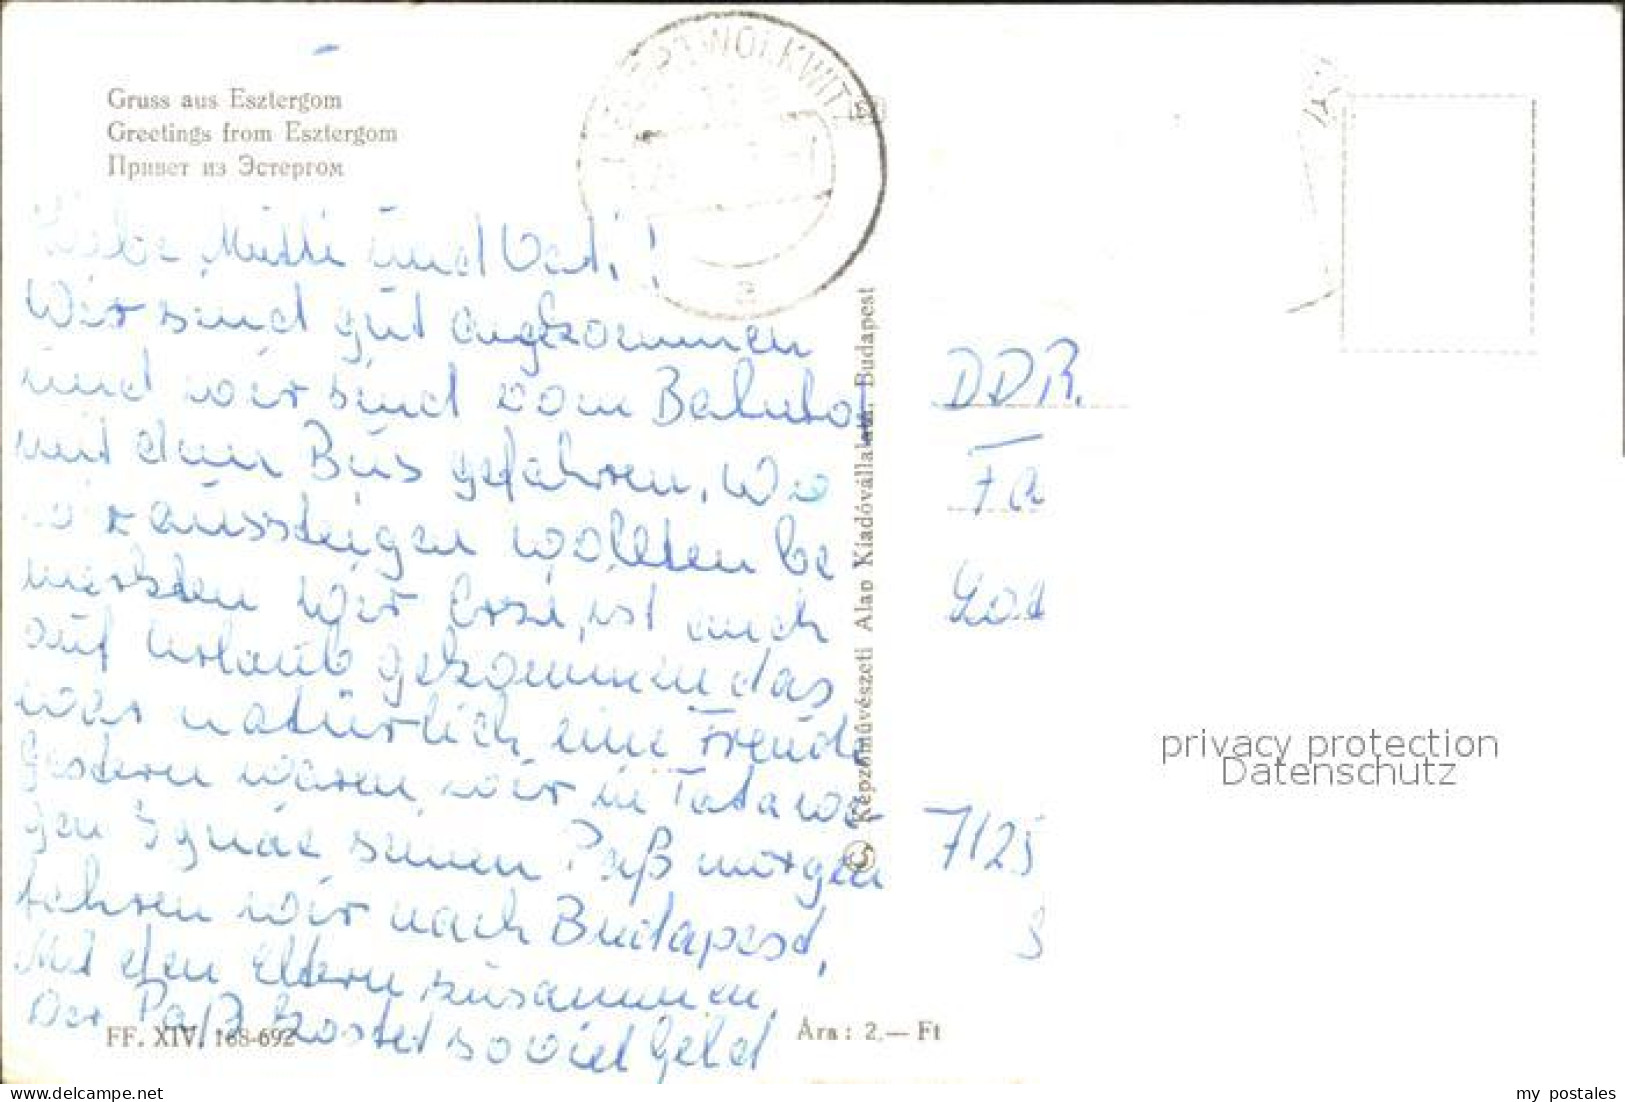 Gruss aus Esztergom
Greetings from Esztergom
Привет из Эстергом
LIEBERTWOLKWITZ
a
Liebe Mutti und Vati!
Wir sind gut angekommen
und wir sind vom Bahnhof
mit dem Bus gefahren. Wo
wir aussteigen wollten be
merkten wir Erzsi, ist auch
auf Urlaub gekommen das
war natürlich eine Freude
Gestern waren wir in Tata we-
gen Ignác seinen Paß morgen
fahren wir nach Budapest,
Mit den Eltern zusammen,
Der Paß kostet soviel Geld
FF. XIV. 168-692
Ára: 2,— Ft
© Képzőművészeti Alap Kiadóvállalata, Budapest
DDR.
Fa
7125
privacy protection
Datenschutz
my postales